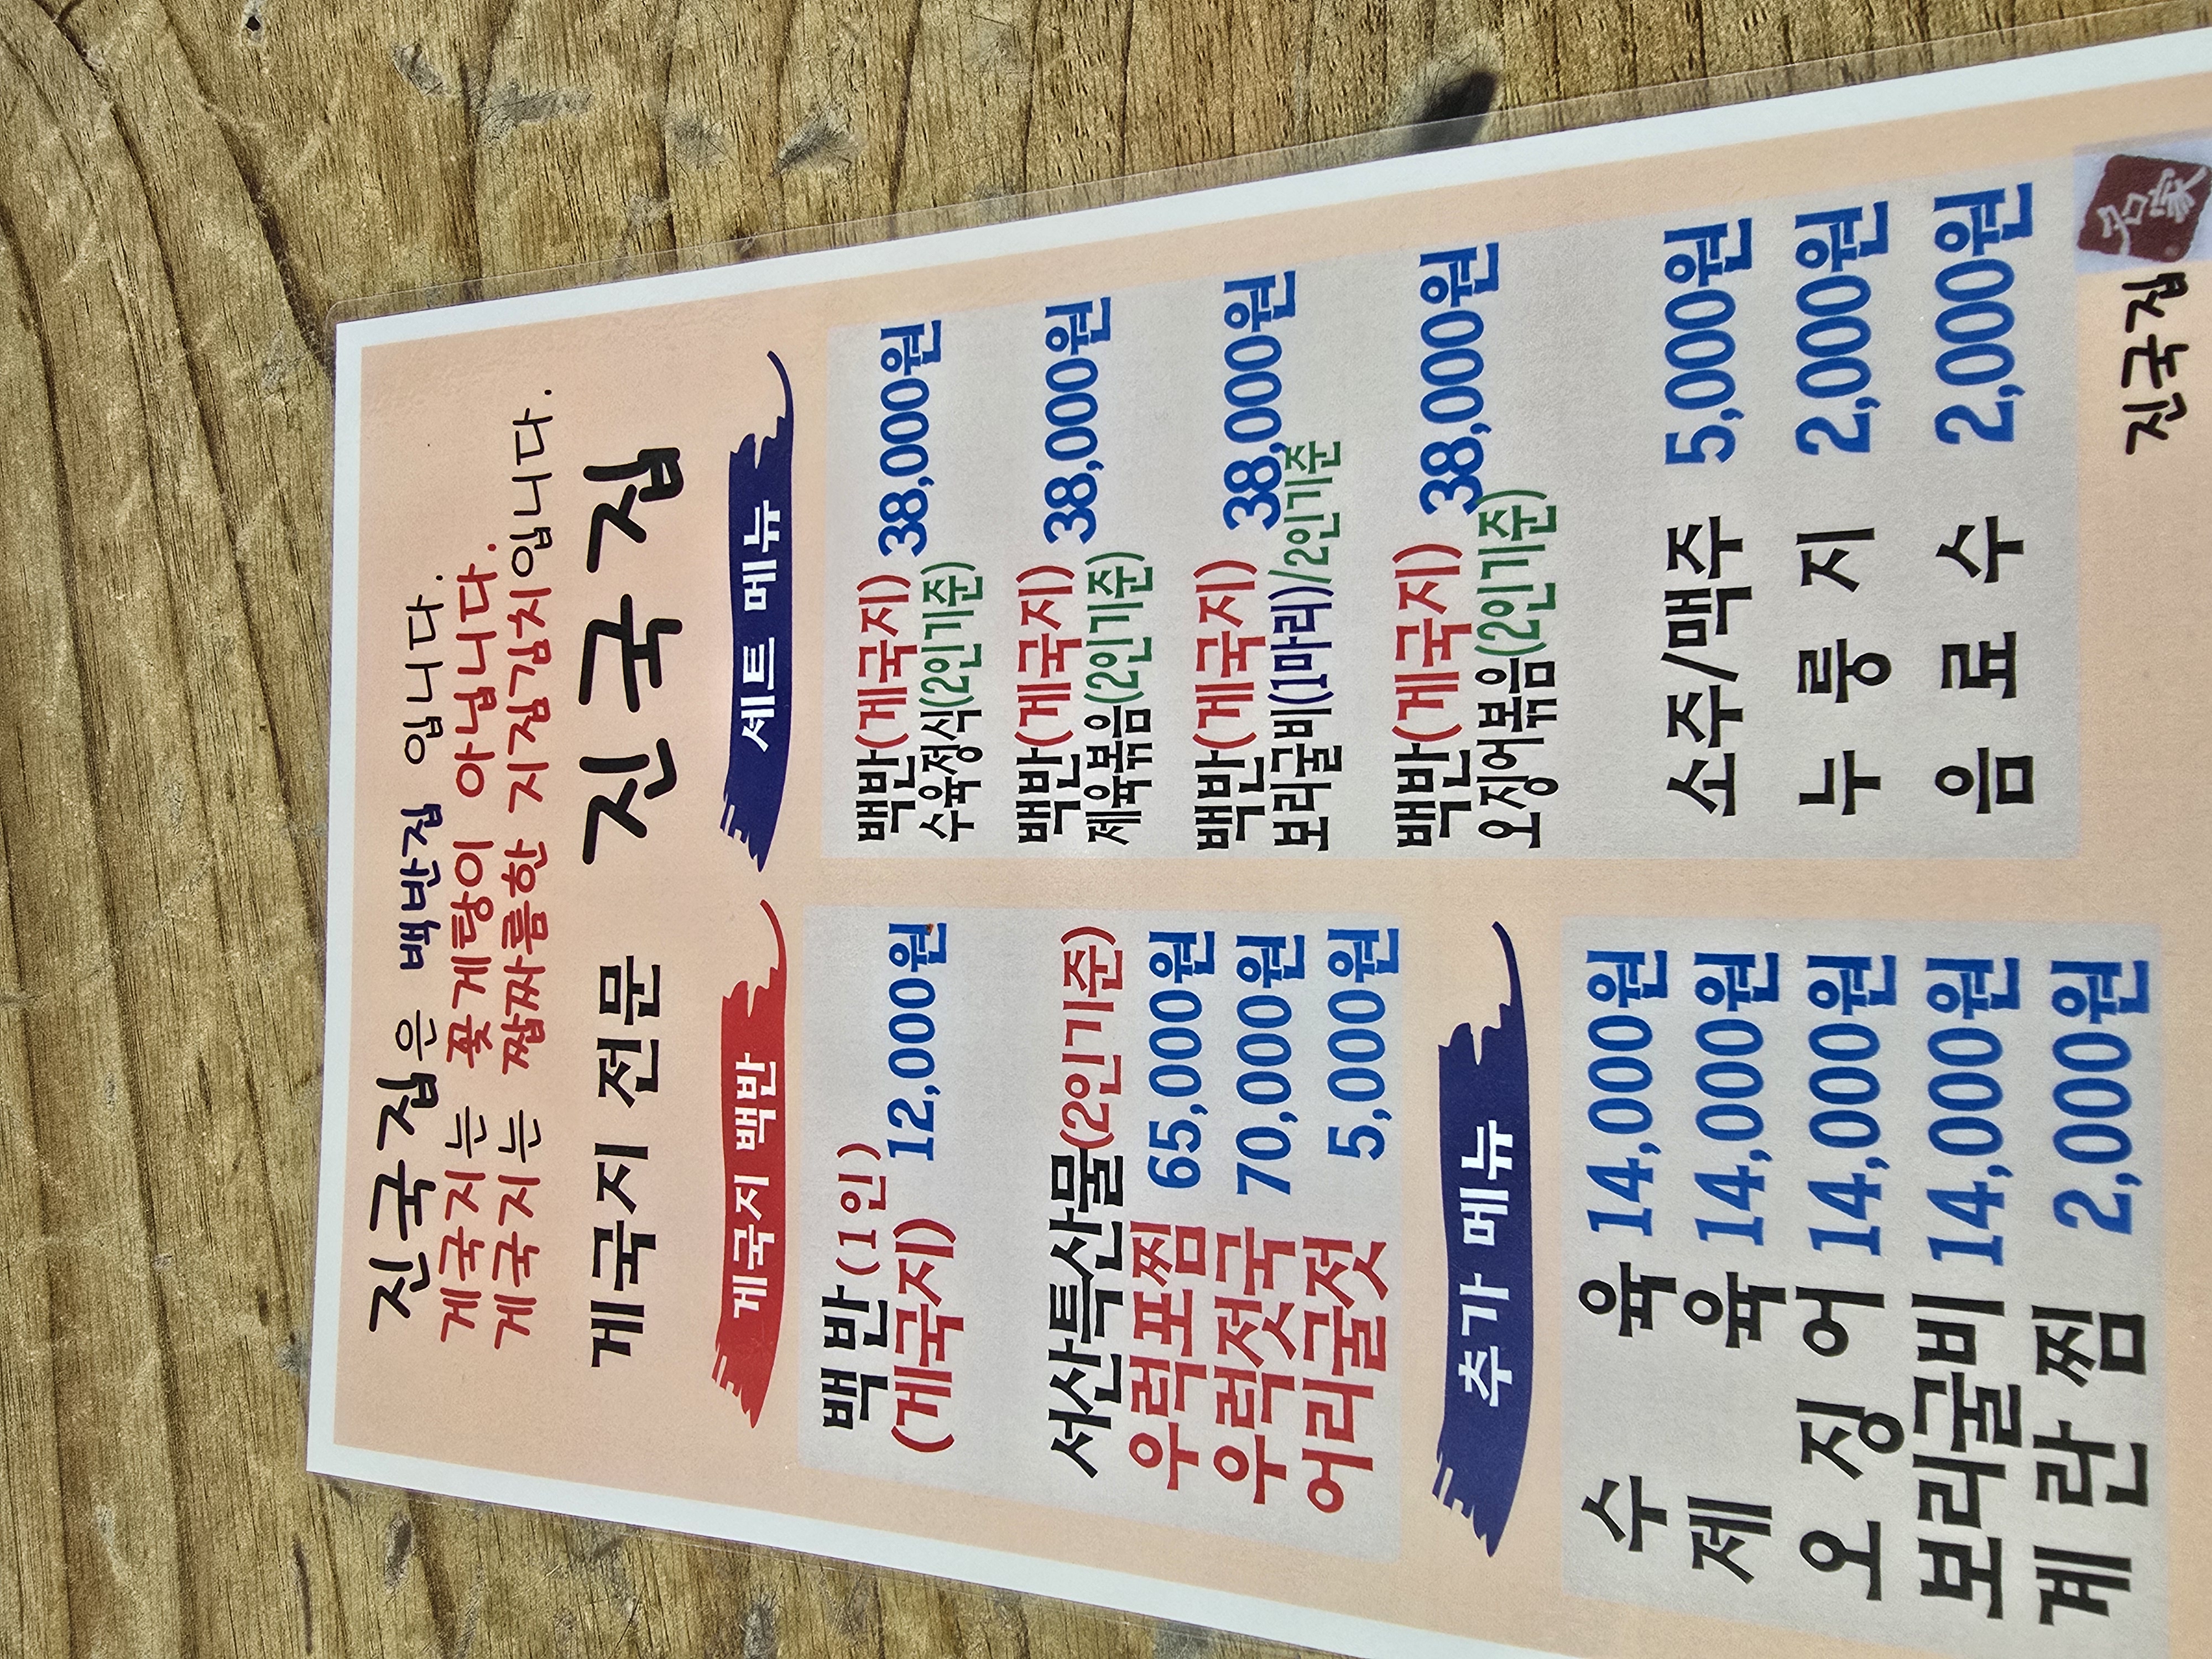 진국집은 백반집 입니다.
게국지는 꽃게탕이 아닙니다.
게국지는 짭짜름한 지집김치입니다.
게국지 전문 진국집
게국지 백반
백반(1인)
(게국지) 12,000원
서산특산물(2인기준)
우럭포찜 65,000원
우럭젓국 70,000원
어리굴젓 5,000원
추가 메뉴
수 육 14,000원
제 육 14,000원
오 징 어 14,000원
보리굴비 14,000원
계 란 찜 2,000원
세트 메뉴
백반(게국지) 38,000원
수육정식(2인기준)
백반(게국지) 38,000원
제육볶음(2인기준)
백반(게국지) 38,000원
보리굴비(1마리)/2인기준
백반(게국지) 38,000원
오징어볶음(2인기준)
소주/맥주 5,000원
누 룽 지 2,000원
음 료 수 2,000원
진국집 名家